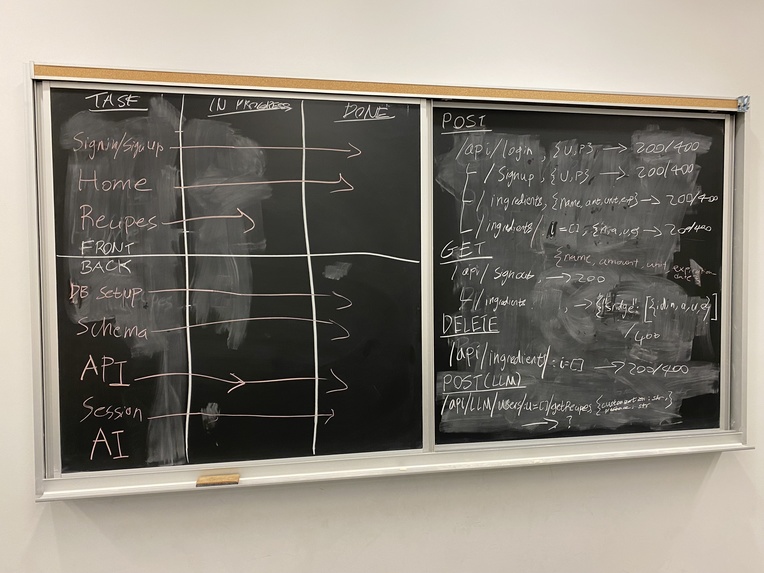 TASK IN PROGRESS DONE
Signin/signup
Home
Recipes
FRONT
BACK
DB setup
Schema
API
Session
AI
POST
/api/login, {U,P} → 200/400
/Signup, {U,P} → 200/400
/ingredients, {name, amt, unit, exp} → 200/400
/ingredients/:i=[], {n,a,u,e} → 200/400
GET
{name, amount, unit, expiration date}
/api/signout, → 200
/ingredients, → {"fridge": [{id,n,a,u,e}]}
/400
DELETE
/api/ingredient/:i=[] → 200/400
POST(LLM)
/api/LLM/users/:u=[]/getRecipes {
:str,
:str}
→ ?